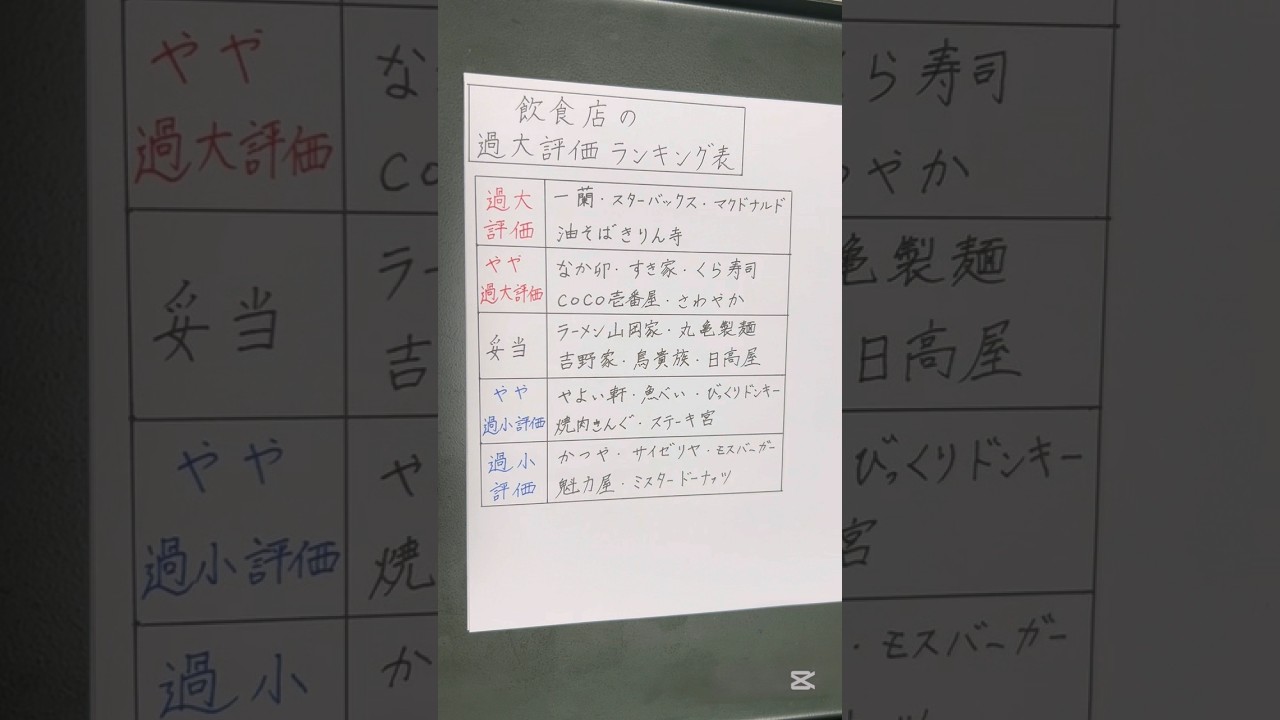 飲食店の
過大評価ランキング表
過大
評価
一蘭・スターバックス・マクドナルド
油そばきりん寺
やや
過大評価
なか卯・すき家・くら寿司
COCO壱番屋・さわやか
妥当
ラーメン山岡家・丸亀製麺
吉野家・鳥貴族・日高屋
やや
過小評価
やよい軒・魚べい・びっくりドンキー
焼肉きんぐ・ステーキ宮
過小
評価
かつや・サイゼリヤ・モスバーガー
魁力屋・ミスタードーナッツ